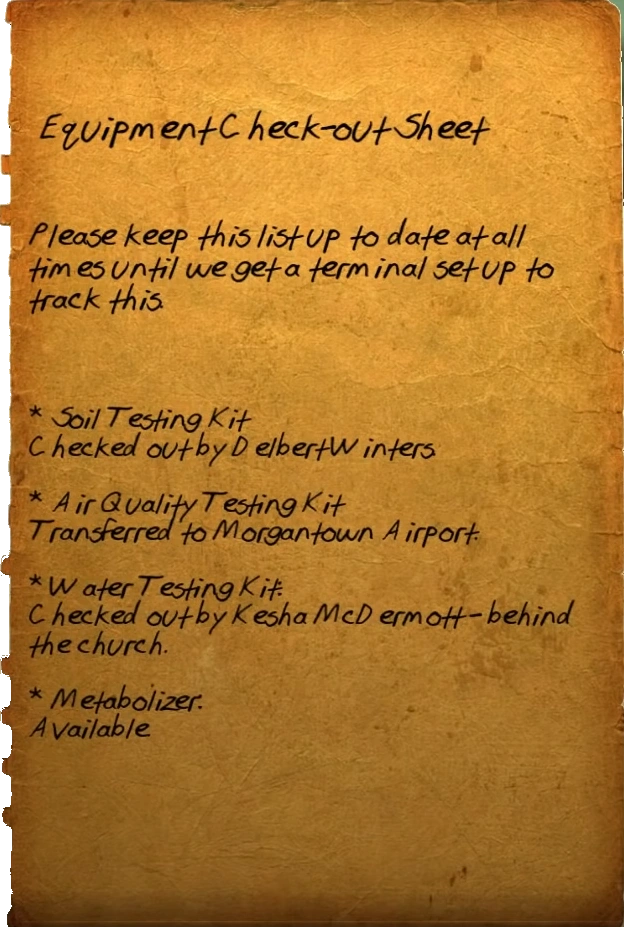 Equipment Check-out Sheet
Please keep this list up to date at all
times until we get a terminal set up to
track this.
* Soil Testing Kit
Checked out by Delbert Winters.
* Air Quality Testing Kit
Transferred to Morgantown Airport.
* Water Testing Kit.
Checked out by Kesha McDermott - behind
the church.
* Metabolizer.
Available